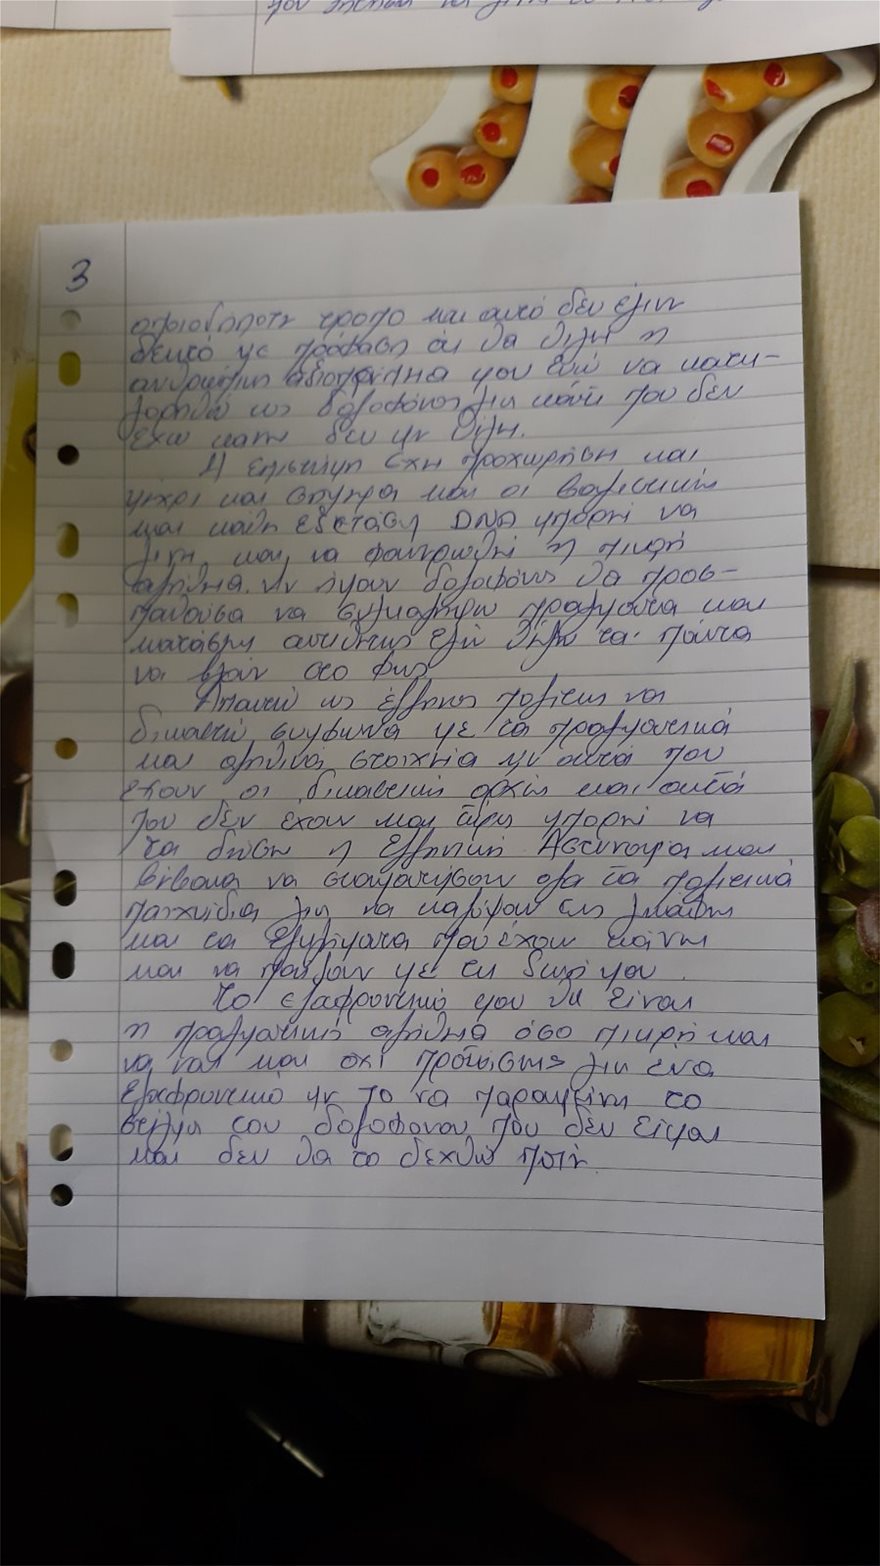 3
οποιοδήποτε τροπο και αυτό δεν έγινε
δεκτό με πρόφαση ότι θα θιγεί η
ανθρώπινη αξιοπρέπεια μου ενώ να κατη-
γορηθώ ως δολοφόνος για κάτι που δεν
έχω κάνει δεν με θίγει.
Η επιστήμη έχει προχωρήσει και
μέχρι και σήμερα και οι βαλιστικές
και κάθε εξέταση DNA μπορεί να
γίνει και να φανερωθεί η πικρή
αλήθεια. Αν ήμουν δολοφόνος θα προσ-
παθούσα να συγκαλύψω πράγματα και
καταστάσεις αντιθέτως εγώ θέλω τα πάντα
να βγουν στο φως
Απαιτώ ως έλληνας πολίτης να
δικαστώ συμφωνα με τα πραγματικά
και αληθινά στοιχεία με αυτά που
έχουν οι δικαστικές αρχές και αυτά
που δεν έχουν και μπορεί να
τα δώσει η Ελληνική Αστυνομια και
βέβαια να σταματήσουν ολα τα πολιτικά
παιχνίδια για να καλύψουν τις γκάφες
και τα εγκλήματα που έχουν κάνει
και να παίζουν με τη ζωή μου.
Το ελαφρυντικό μου θα είναι
η πραγματική αλήθεια όσο πικρή και
να ναι και όχι προτάσεις για ενα
ελαφρυντικό με το να παραμείνει το
στίγμα του δολοφονου που δεν είμαι
και δεν θα το δεχθώ ποτέ.